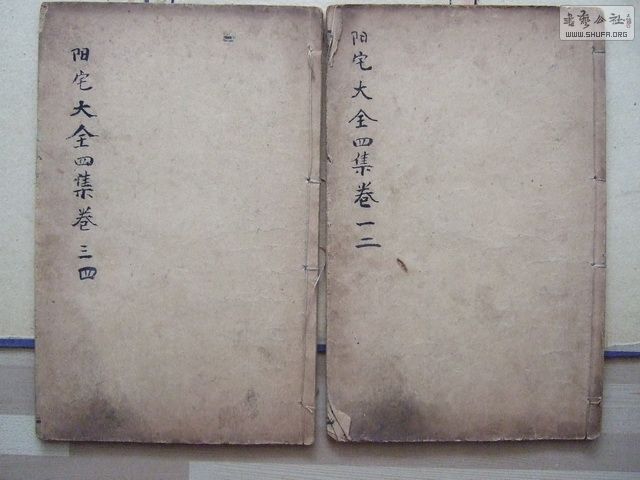 阳宅大全四集卷一二
阳宅大全四集卷三四
書藝公社
WWW.SHUFA.ORG